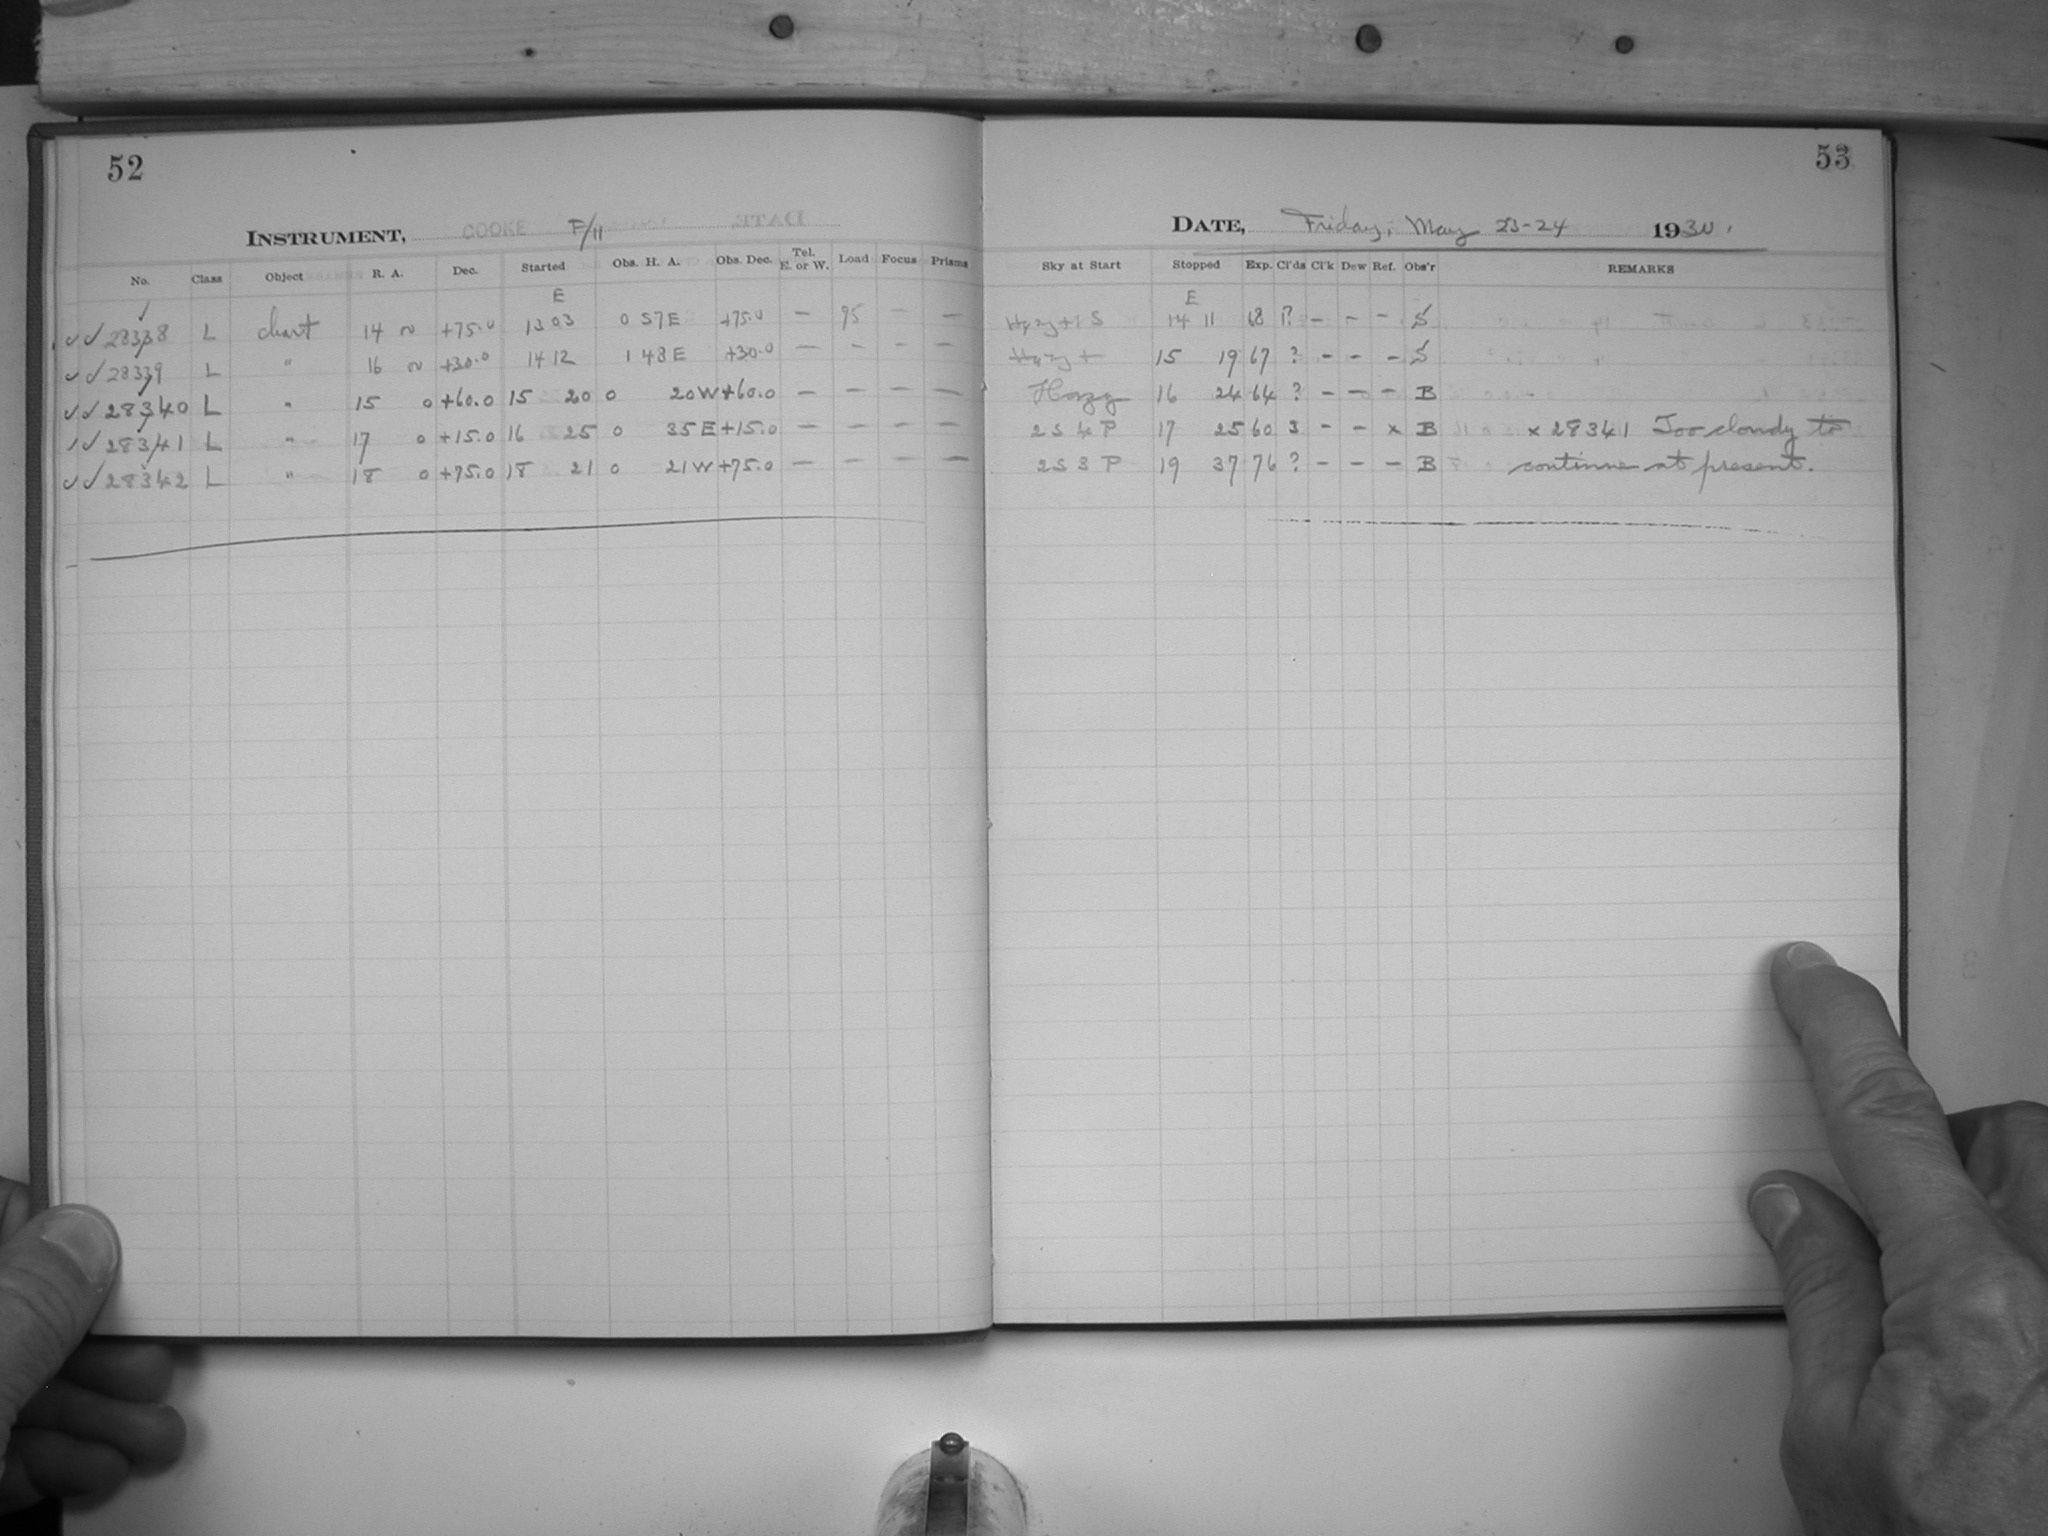 52
INSTRUMENT, COOKE F/11
No. Class Object R. A. Dec. Started Obs. H. A. Obs. Dec. Tel. E. or W. Load Focus Prisms
E
28338 L chart 14 +75.0 13 03 0 57 E +75.0 — 95 — —
28339 L " 16 +30.0 14 12 1 48 E +30.0 — - - —
28340 L " 15 0 +60.0 15 20 0 20 W +60.0 — — — —
28341 L " 17 0 +15.0 16 25 0 35 E +15.0 — — — —
28342 L " 18 0 +75.0 18 21 0 21 W +75.0 — — — —
53
DATE, Friday, May 23-24 1930.
Sky at Start Stopped Exp. Cl'ds Cl'k Dew Ref. Obs'r REMARKS
E
Hazy 14 11 68 ? - - - S
Hazy + 15 19 67 ? - - - S
Hazy 16 24 64 ? - - - B
2 S 4 P 17 25 60 3 - - x B x 28341 Too cloudy to
2 S 3 P 19 37 76 ? - - - B continue at present.